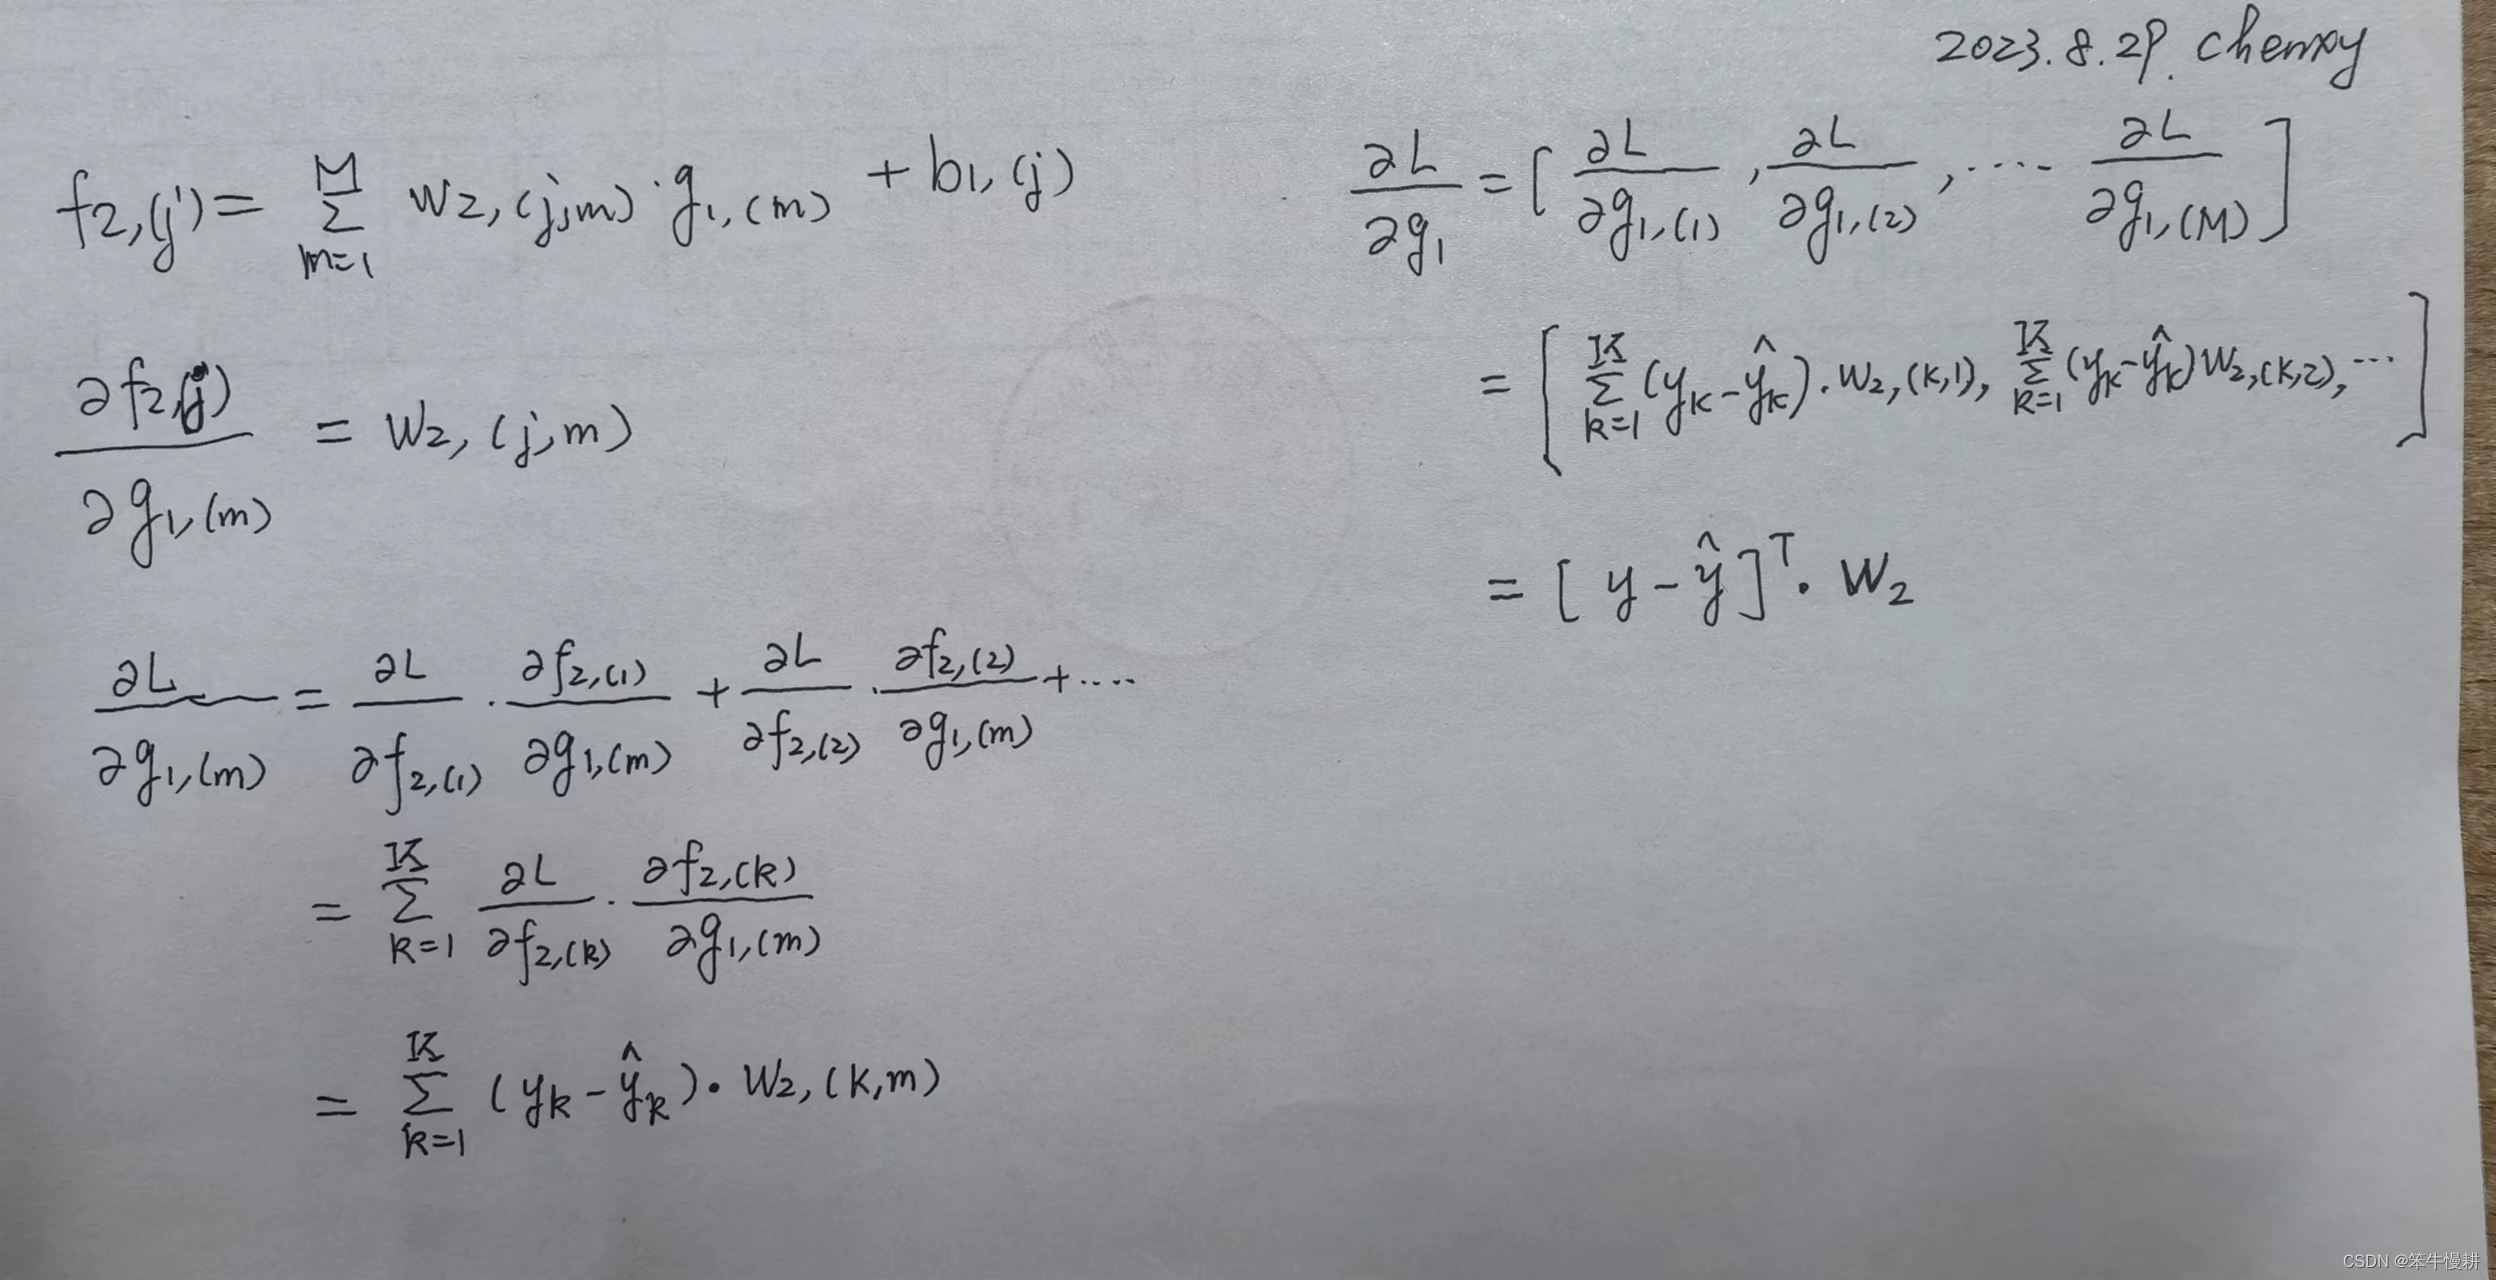 2023.8.29. Chenxy
f₂,(j) = Σ_{m=1}^{M} W₂,(j,m) · g₁,(m) + b₁,(j)
∂f₂,(j) / ∂g₁,(m) = W₂,(j,m)
∂L / ∂g₁,(m) = ∂L / ∂f₂,(1) · ∂f₂,(1) / ∂g₁,(m) + ∂L / ∂f₂,(2) · ∂f₂,(2) / ∂g₁,(m) + ....
= Σ_{k=1}^{K} ∂L / ∂f₂,(k) · ∂f₂,(k) / ∂g₁,(m)
= Σ_{k=1}^{K} (y_k - ŷ_k) · W₂,(k,m)
∂L / ∂g₁ = [ ∂L / ∂g₁,(1) , ∂L / ∂g₁,(2) , .... ∂L / ∂g₁,(M) ]
= [ Σ_{k=1}^{K} (y_k - ŷ_k) · W₂,(k,1), Σ_{k=1}^{K} (y_k - ŷ_k) W₂,(k,2), ... ]
= [ y - ŷ ]^T · W₂
CSDN @笨牛慢耕